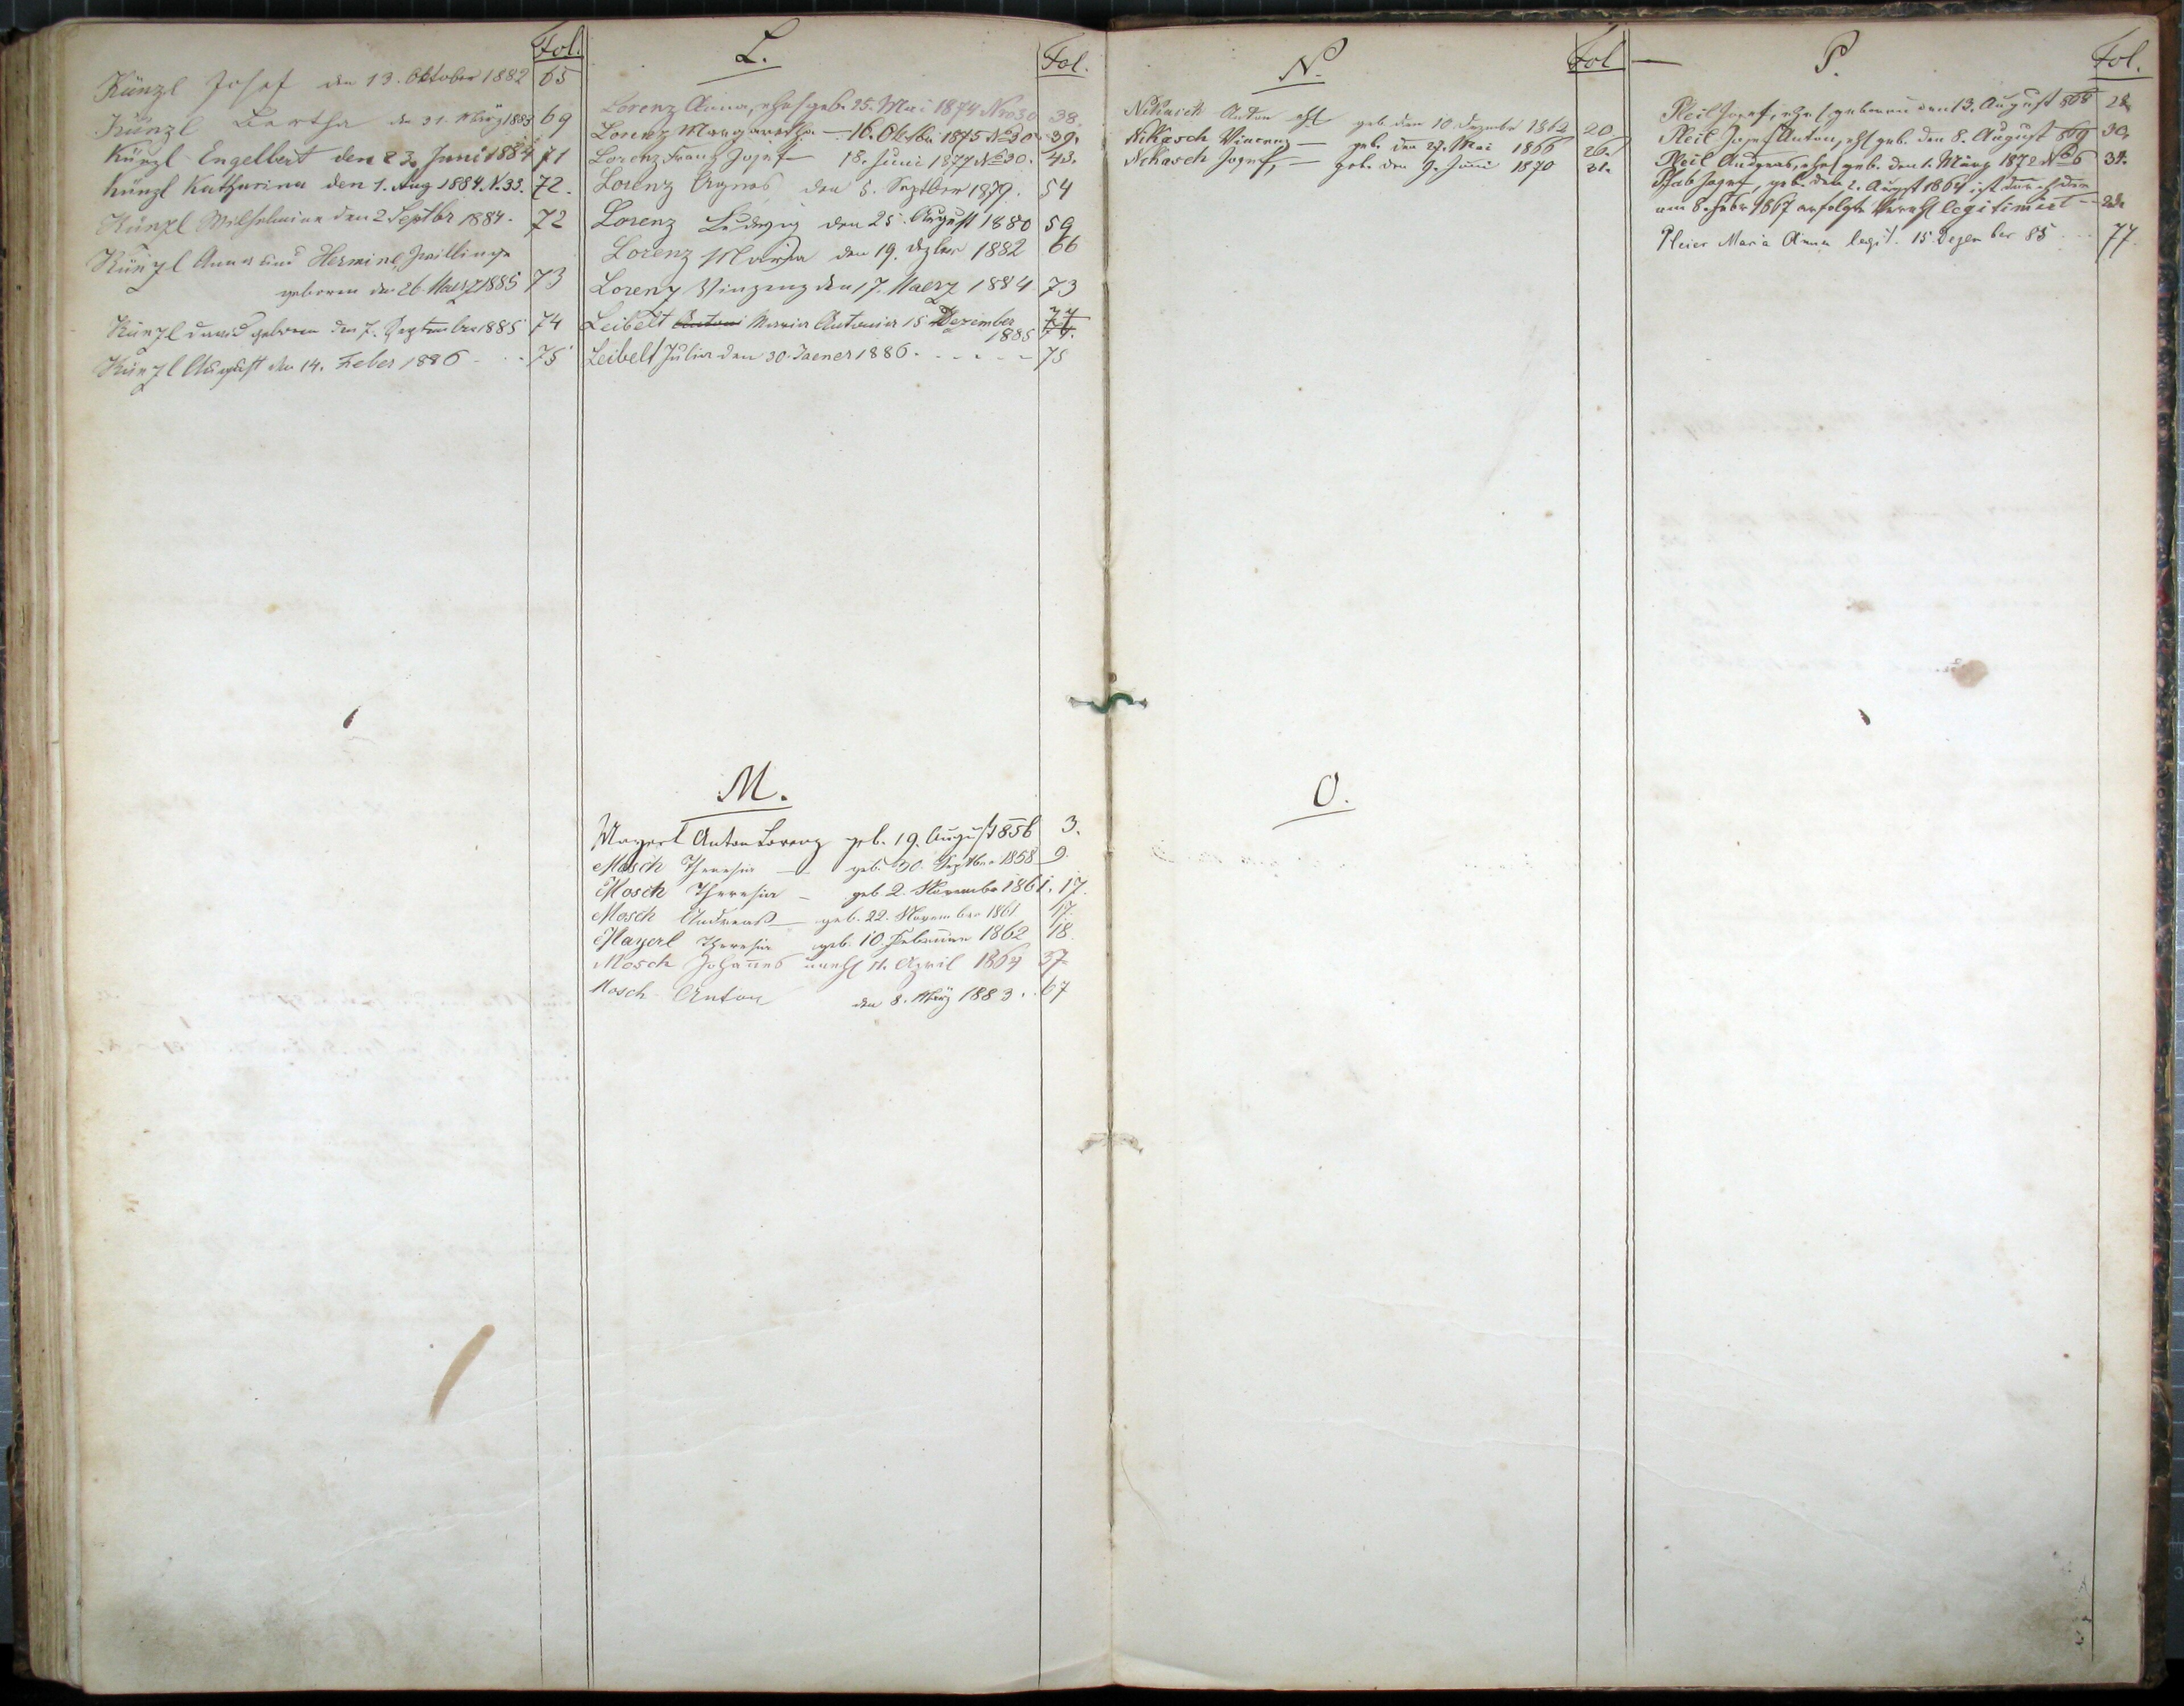 Fol.
Künzl Josef den 13. Oktober 1882 65
Künzl Bertha den 31. März 1883 69
Künzl Engelbert den 23. Juni 1884 71
Künzl Katharina den 1. Aug 1884. N. 33. 72.
Künzl Wilhelmine den 2 Septbr 1884. 72
Künzl Anna und Hermine, Zwillinge
geboren den 26. Maerz 1885 73
Künzl David geboren den 7. September 1885 74
Künzl August den 14. Feber 1886 - . . 75
L. Fol.
Lorenz Anna, ehel geb. 25. Mai 1874 Nro 30 38.
Lorenz Margaretha — 16. Oktbr 1875 No 30. 39.
Lorenz Franz Josef — 18. Juni 1877 No 30. 43.
Lorenz Agnes den 5. Septber 1879. 54
Lorenz Ludwig den 25. August 1880 59
Lorenz Maria den 19. Dezber 1882 66
Lorenz Vinzenz den 17. Maerz 1884 73
Leibelt Antoni Maria Antonia 15 Dezember 77
1885 74.
Leibelt Julia den 30. Jaener 1886. - - - - - 75
M.
Mayerl Anton Lorenz geb. 19. August 1856 3.
Mosch Theresia — geb. 30. Septber 1858 9.
Mosch Theresia — geb 2. November 1861. 17.
Mosch Andreas — geb. 22. November 1861 17.
Mayerl Theresia geb. 10. Februar 1862 18.
Mosch Johannes unehl 11. April 1864 37
Mosch Anton den 8. März 1883. . 67
N. Fol
Anton ehl geb den 10. Dezember 1862 20.
Nikasch Vincenz — geb. den 27. Mai 1866 26.
Josef, — geb. den 9. Juni 1870 31.
O.
— P. Fol.
Pleil Josef, ehel geboren den 13. August 868 28.
Pleil Josef Anton, ehl geb. den 8. August 869 30.
Pleil Andreas, ehel geb. den 1. März 1872 No 6 34.
Josef, geb. den 2. August 1864 ist durch den
am 8. Febr 1867 erfolgte Verehl legitimirt —
Pleier Maria Anna legit. 15 Dezember 85 . . . 77.